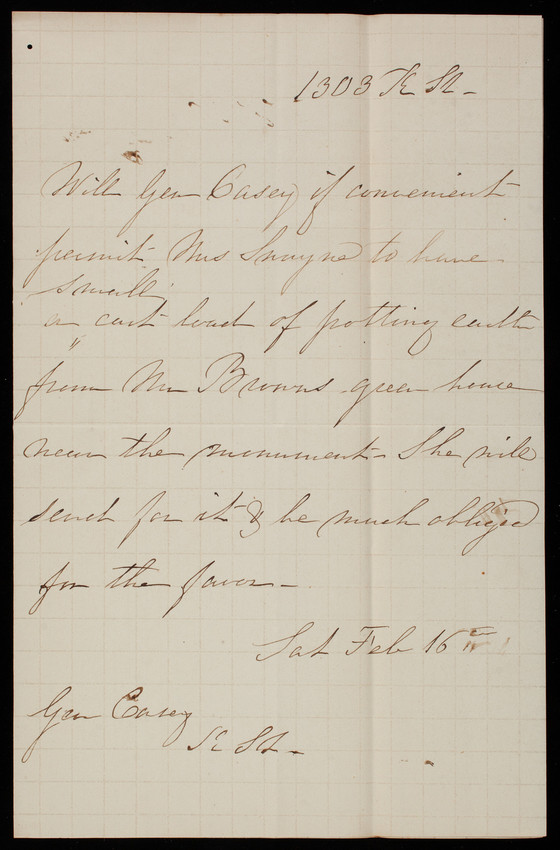 1303 K St -
Will Gen Casey if convenient
permit Mrs Swayne to have
small
a cart load of potting earth
from Mr Browns green house
near the monument - She will
send for it & be much obliged
for the favor -
Sat Feb 16th
Gen Casey
K St -